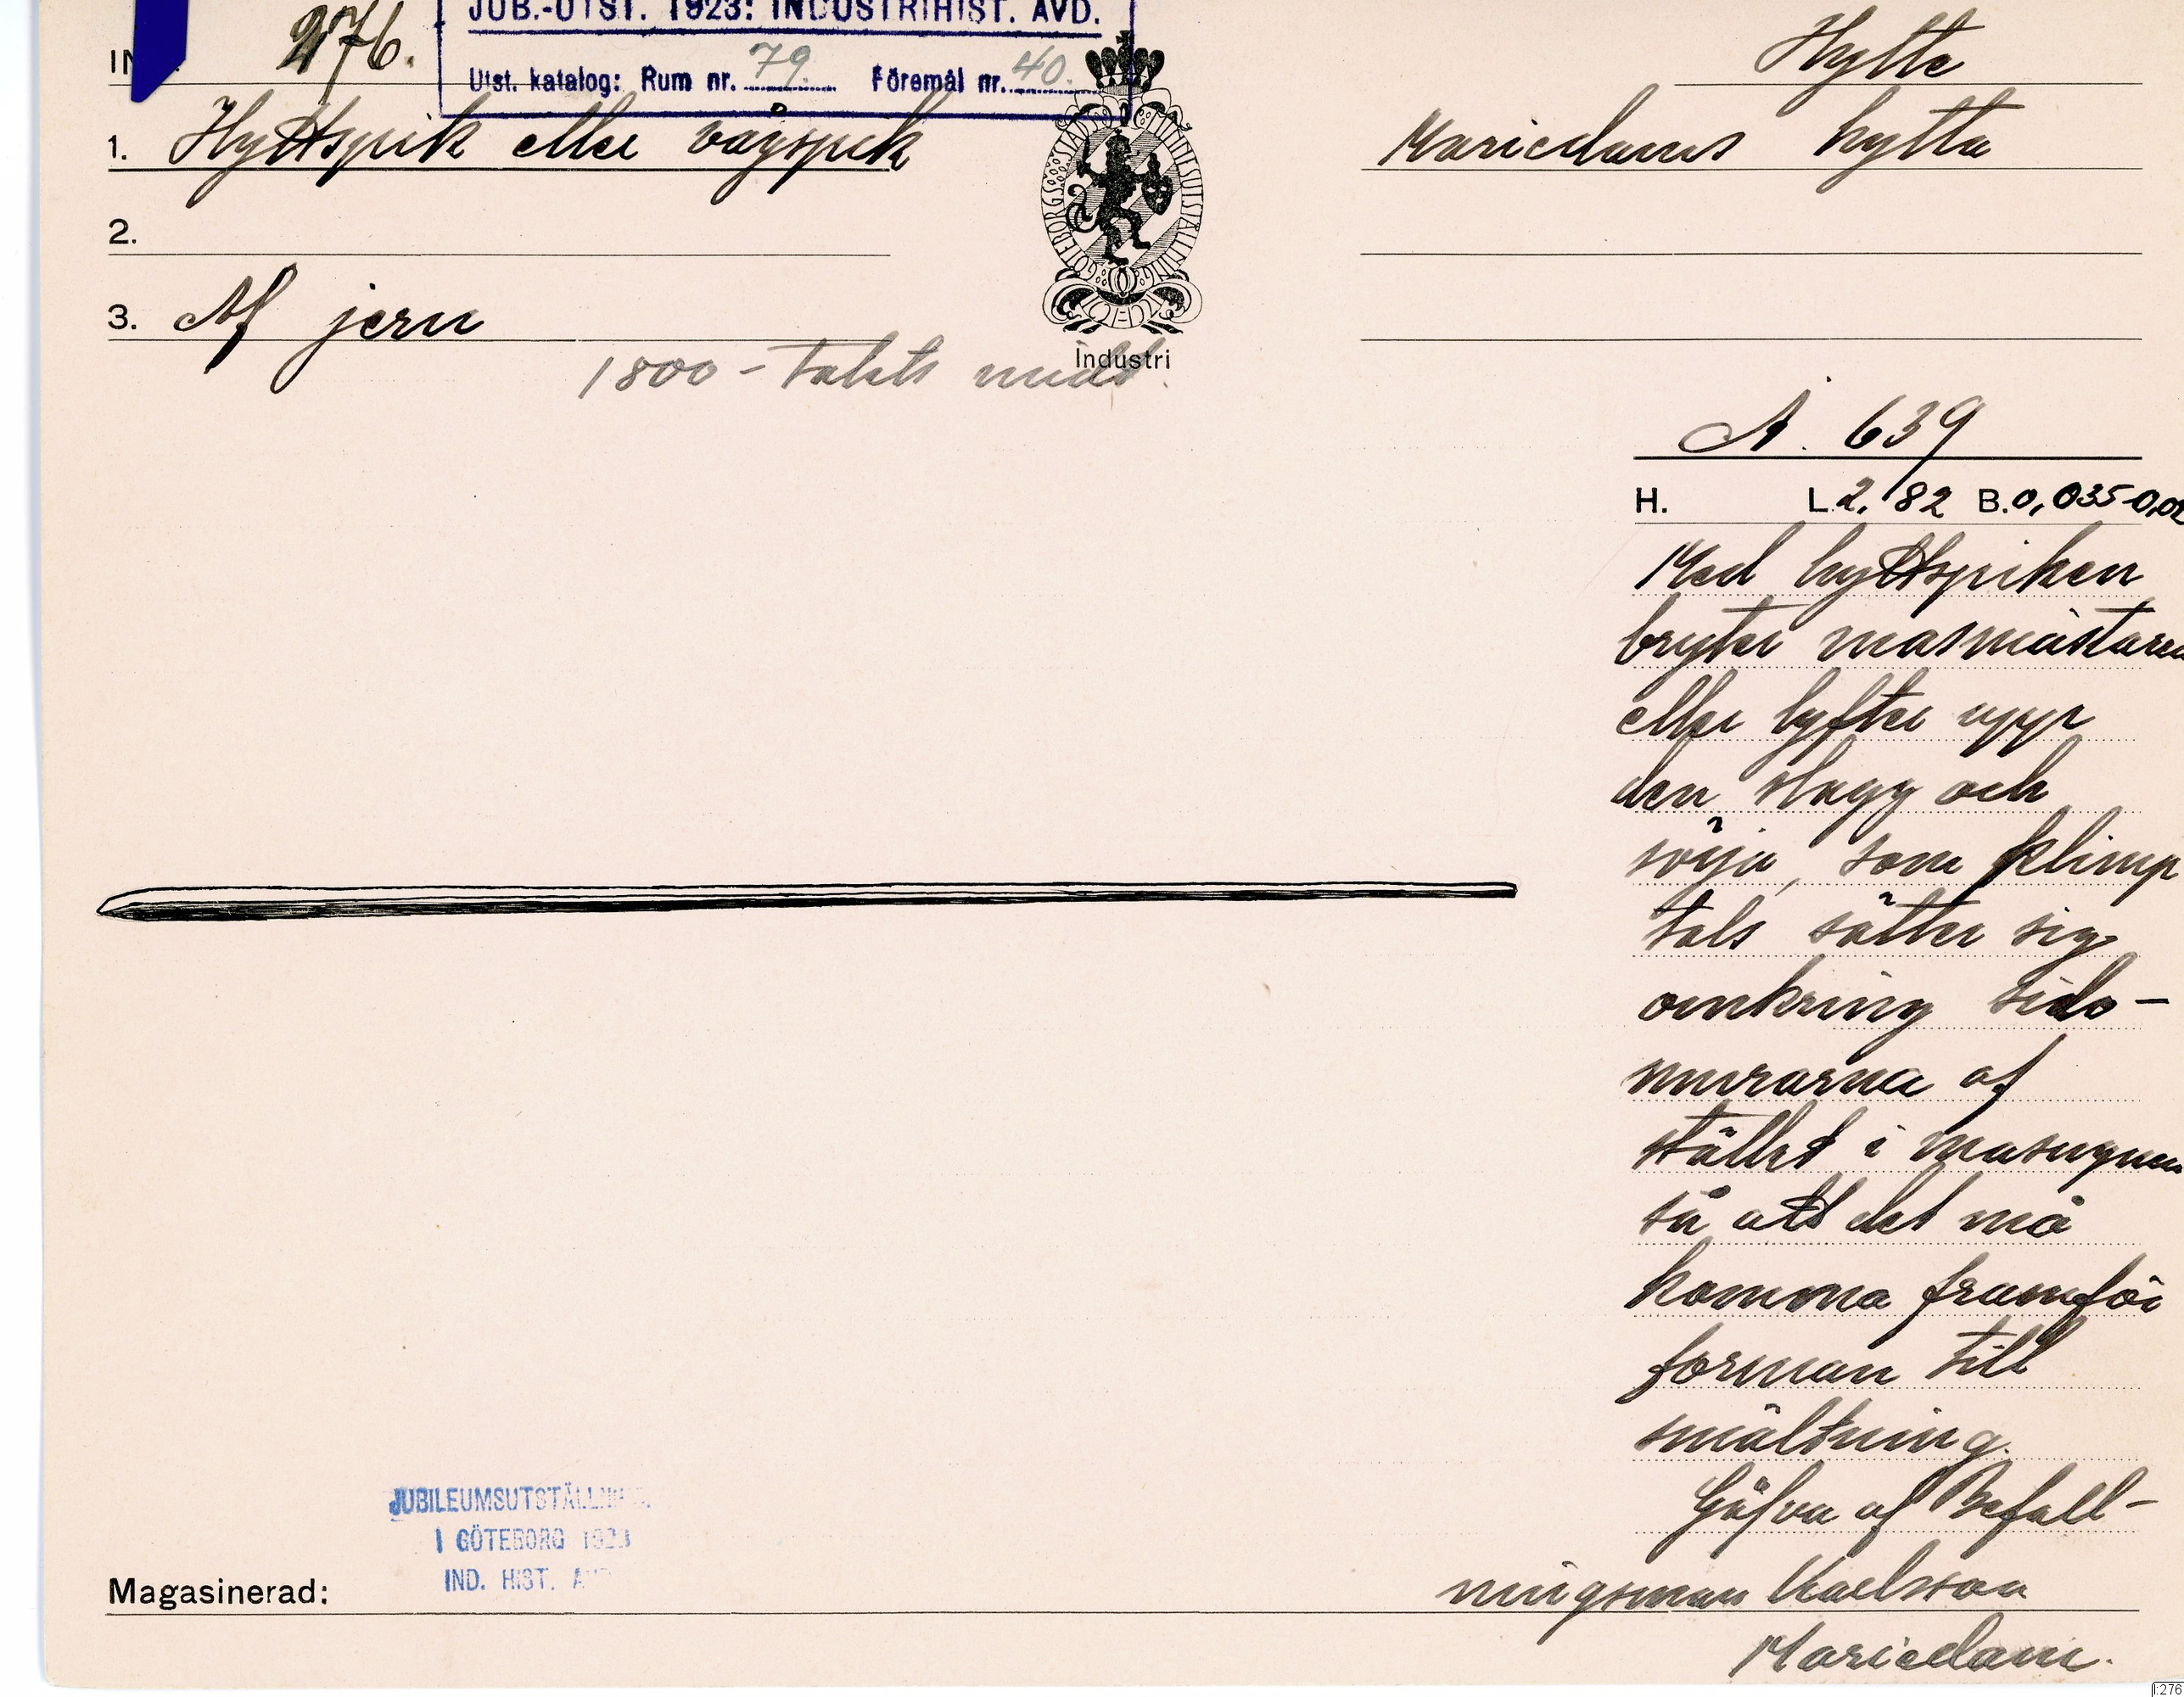 IN
276.
JUB.-UTST. 1923: INDUSTRIHIST. AVD.
Utst. katalog: Rum nr. 79. Föremål nr. 40.
Hytte
1. Hyttspik eller vågspik
Mariedams hytta
2.
3. Af jern
GÖTEBORGS STADS
Industri
1800-talets midt.
A. 639
H. L. 2,82 B. 0,035-0,02
Med hyttspiken
bryter masmästaren
eller lyfter upp
den slagg och
som klimp
tals sätter sig
omkring sido-
murarna af
stället i masugnen
så att det må
komma framför
forman till
smältning.
Gåfva af Befall-
ningsman Karlsson
Mariedam.
JUBILEUMSUTSTÄLLN
I GÖTEBORG 1923
IND. HIST. A
Magasinerad:
I:276